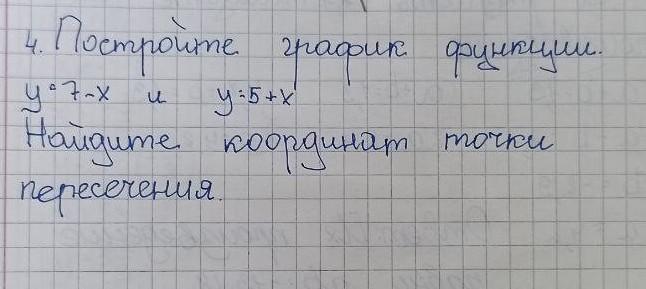 4. Постройте график функции.
y=7-x и y=5+x
Найдите координат точки
пересечения.